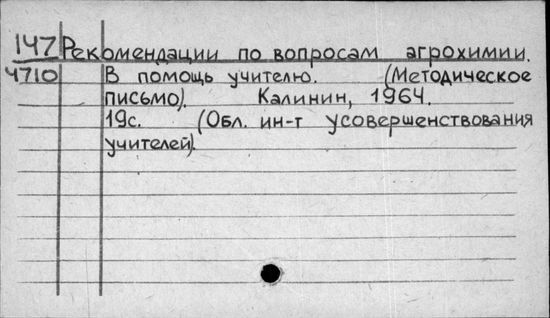 147 Рекомендации по вопросам агрохимии.
4710 В помощь учителю. (Методическое
письмо). Калинин, 1964.
19с. (Обл. ин-т усовершенствования
учителей).